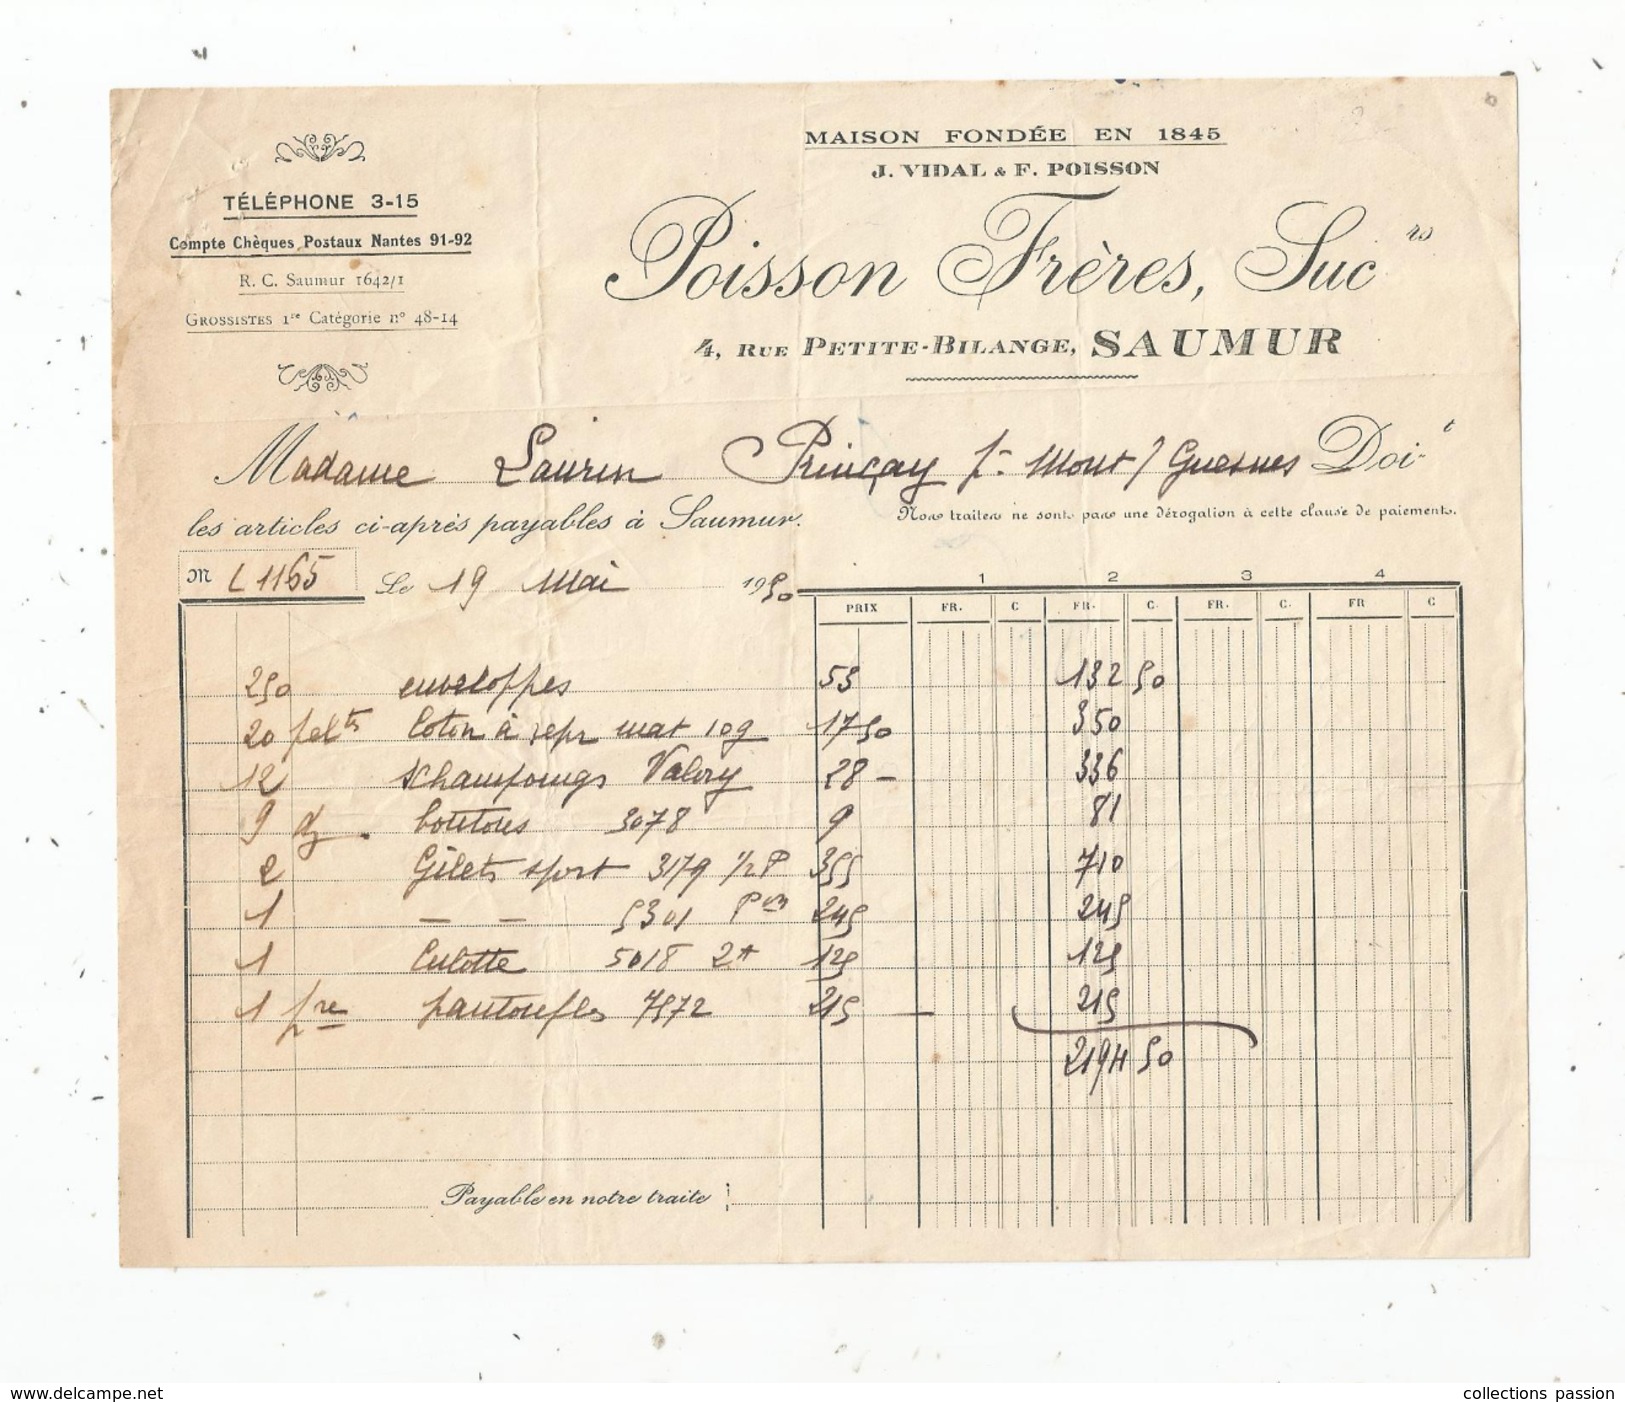 MAISON FONDÉE EN 1845
J. VIDAL & F. POISSON
Poisson Frères, Suc rs
4, RUE PETITE-BILANGE, SAUMUR
TÉLÉPHONE 3-15
Compte Chèques Postaux Nantes 91-92
R. C. Saumur 1642/1
GROSSISTES 1re Catégorie n° 48-14
Madame Laurin Prinçay pr Mont / Guesnes Doit
les articles ci-après payables à Saumur. Nos traites ne sont pas une dérogation à cette clause de paiement.
M L 1165 Le 19 Mai 1950
1 2 3 4
PRIX FR. C FR. C. FR. C. FR C
250 enveloppes 53 132 50
20 pelts Coton à repr mat 10g 17 50 350
12 schampoings Valory 28 - 336
9 dz. boutons 3078 9 81
2 Gilets sport 3179 1/2 P 355 710
1 — — 5301 245 245
1 Culotte 5018 125 125
1 pre pantoufles 7572 215 215
2194 50
Payable en notre traite
www.delcampe.net
collections passion